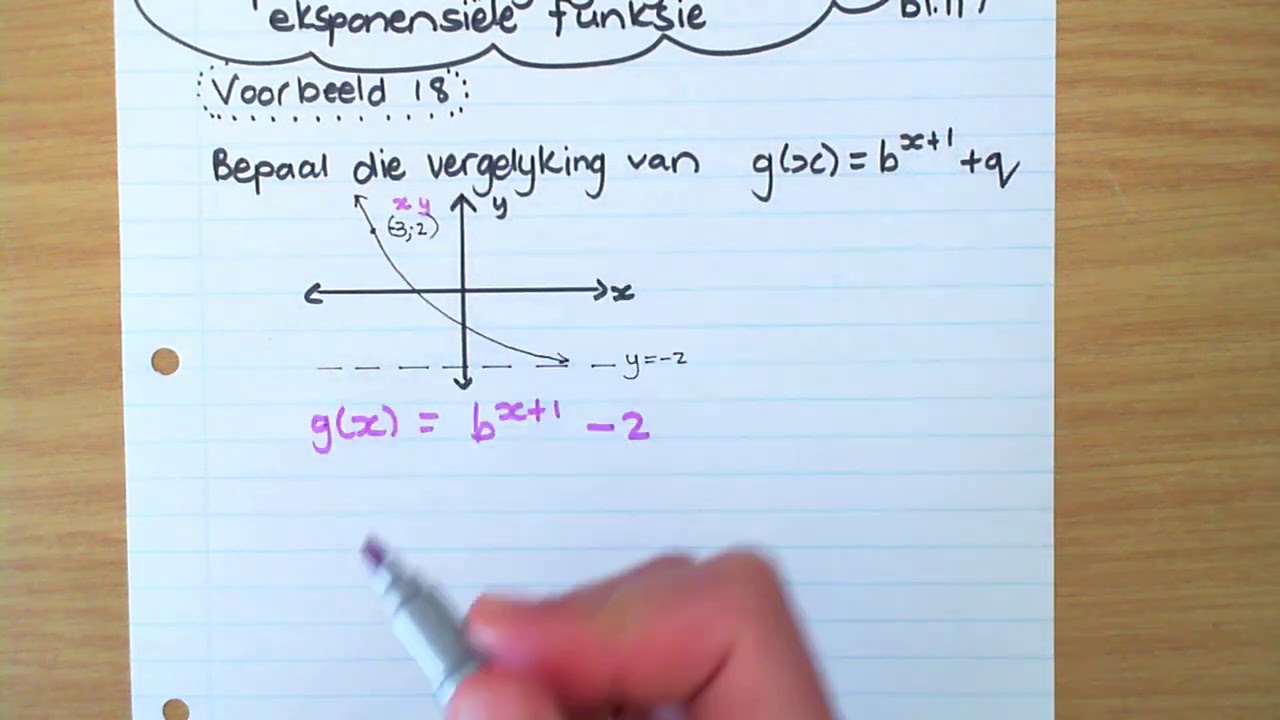 eksponensiële funksie
Voorbeeld 18
Bepaal die vergelyking van g(x) = b^{x+1} + q
x y
y
(-3;2)
x
y=-2
g(x) = b^{x+1} - 2